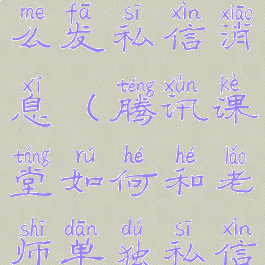 me fā sī xìn xiāo
么发私信消
xī téng xùn kè
息（腾讯课
táng rú hé hé lǎo
堂如何和老
shī dān dú sī xìn
师单独私信